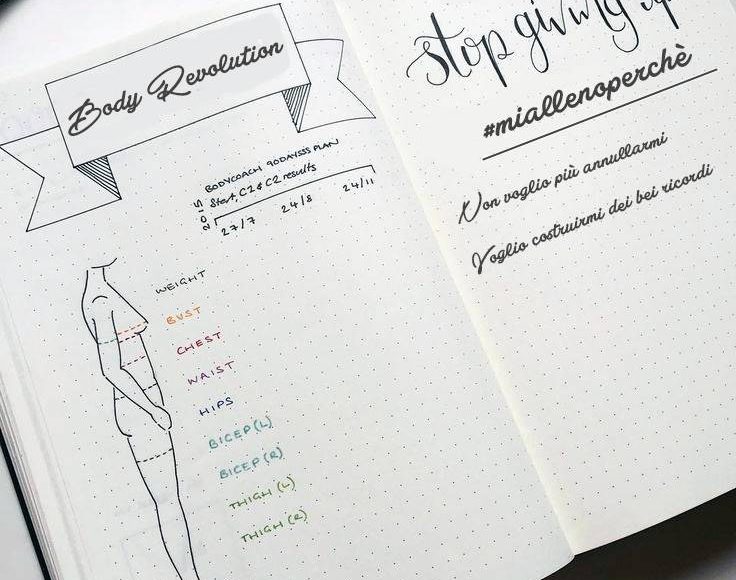 Body Revolution
BODYCOACH 90DAYSSS PLAN
Start, C2 & C2 results
2015
27/7 24/8 24/11
WEIGHT
BUST
CHEST
WAIST
HIPS
BICEP (L)
BICEP (R)
THIGH (L)
THIGH (R)
stop giving up
#miallenoperchè
Non voglio più annullarmi
Voglio costruirmi dei bei ricordi